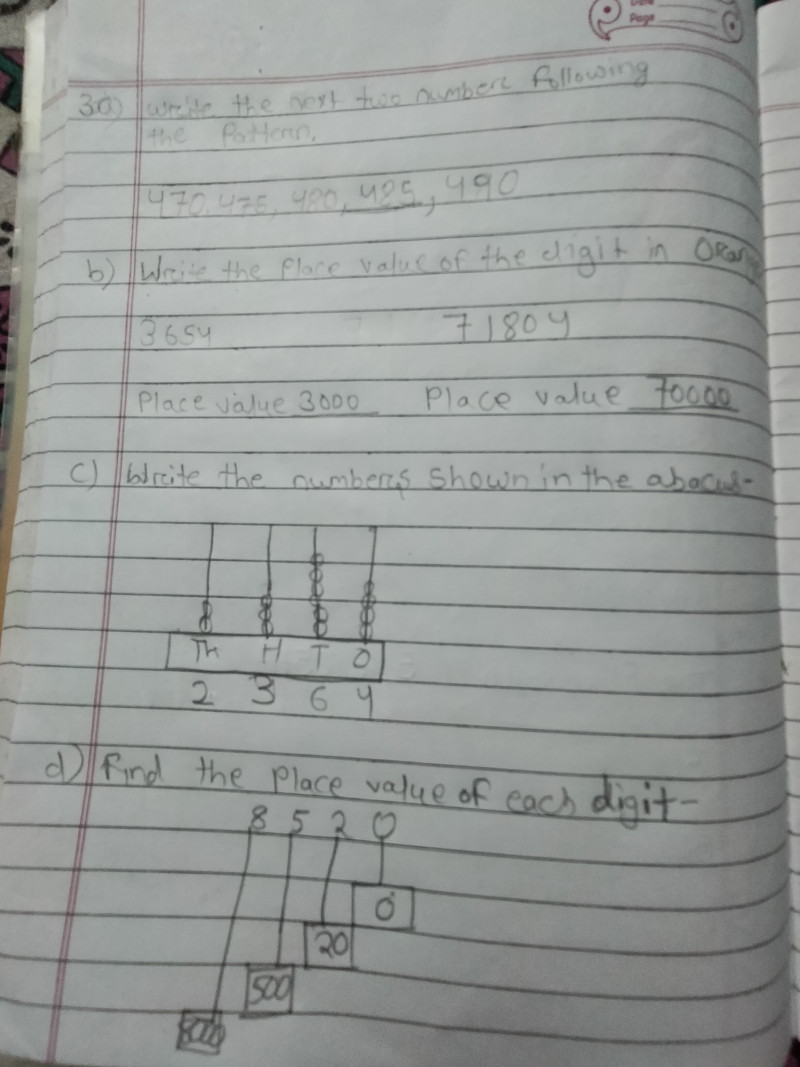 Page
3a) Write the next two numbers following
the Pattern.
470, 475, 480, 485, 490
b) Write the Place value of the digit in
3654 71804
Place value 3000 Place value 70000
c) Write the numbers shown in the abacus-
Th H T O
2 3 6 4
d) Find the Place value of each digit-
8 5 2 0
0
20
500
8000